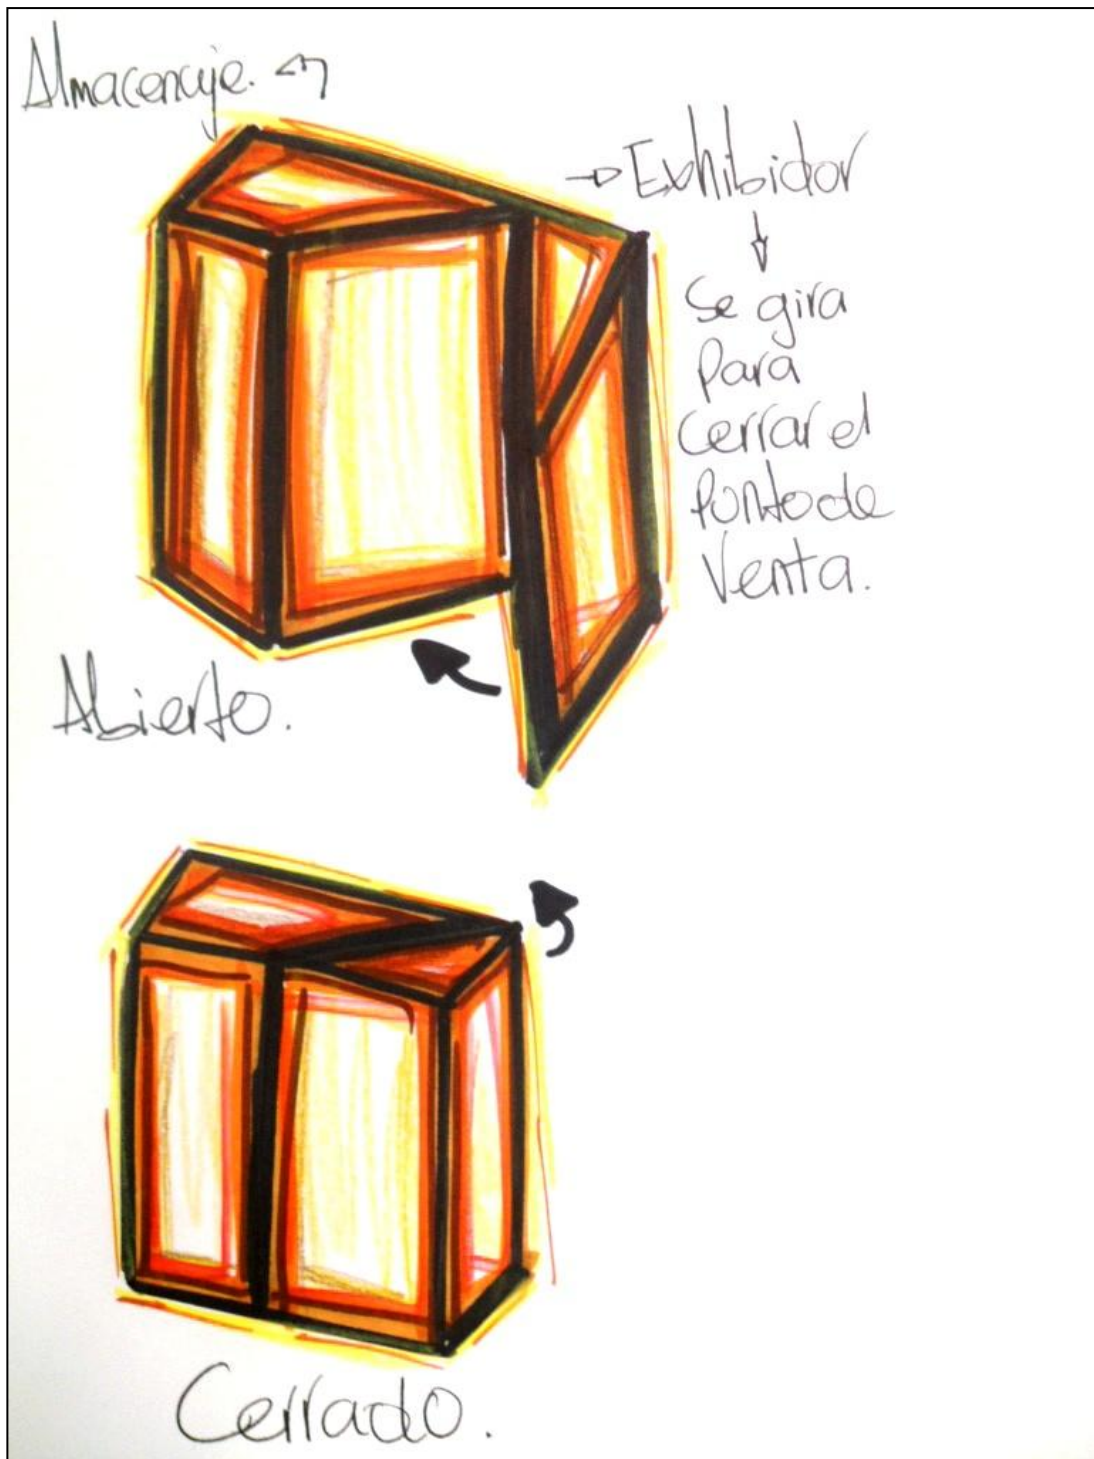 Almacenaje.
Exhibidor
Se gira
para
cerrar el
punto de
Venta.
Abierto.
Cerrado.